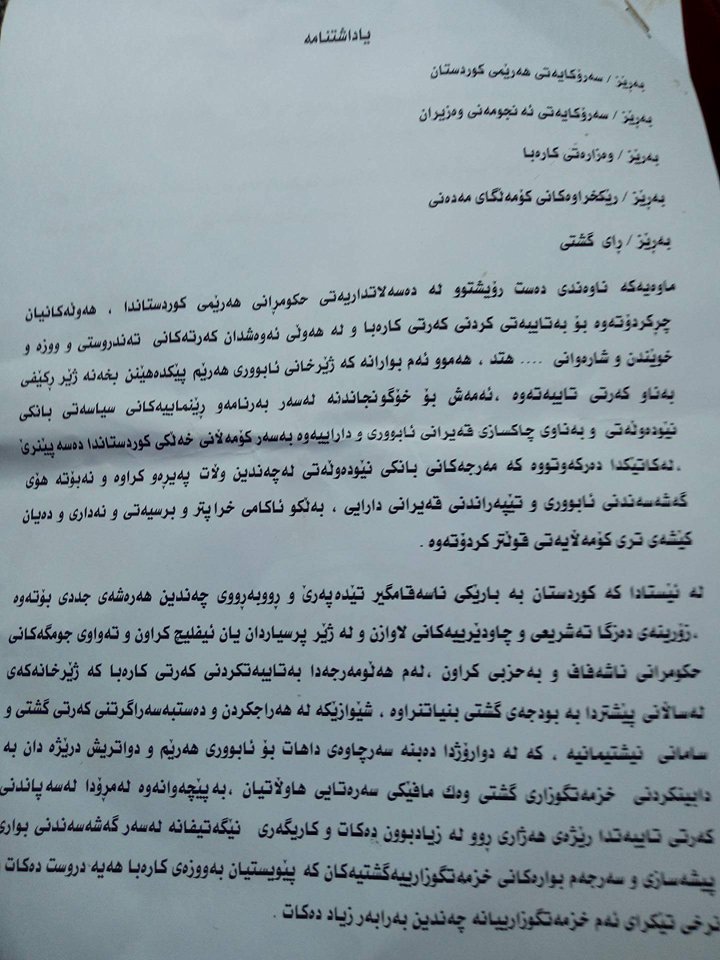 یاداشتنامە
بەڕێز / سەرۆکایەتی هەرێمی کوردستان
بەڕێز / سەرۆکایەتی ئە نجومەنی وەزیران
بەڕێز / وەزارەتی کارەبا
بەڕێز / رێکخراوەکانی کۆمەڵگای مەدەنی
بەڕێز / ڕای گشتی
ماوەیەکە ناوەندی دەست رۆیشتوو لە دەسەلاتداریەتی حکومڕانی هەرێمی کوردستاندا ، هەوڵەکانیان
چڕکردۆتەوە بۆ بەتایبەتی کردنی کەرتی کارەبا و لە هەوڵی ئەوەشدان کەرتەکانی تەندروستی و ووزە و
خوێندن و شارەوانی .... هتد ، هەموو ئەم بوارانە کە ژێرخانی ئابووری هەرێم پێکدەهێنن بخەنە ژێر رکێفی
بەناو کەرتی تایبەتەوە ،ئەمەش بۆ خۆگونجاندنە لەسەر بەرنامەو رێنماییەکانی سیاسەتی بانکی
نێودەوڵەتی و بەناوی چاکسازی قەیرانی ئابووری و داراییەوە بەسەر کۆمەڵانی خەڵکی کوردستاندا دەسەپێنرێ
،لەکاتێکدا دەرکەوتووە کە مەرجەکانی بانکی نێودەوڵەتی لەچەندین وڵات پەیڕەو کراوە و نەبۆتە هۆی
گەشەسەندنی ئابووری و تێپەراندنی قەیرانی دارایی ، بەڵکو ئاکامی خراپتر و برسیەتی و نەداری و دەیان
کێشەی تری کۆمەڵایەتی قوڵتر کردۆتەوە .
لە ئێستادا کە کوردستان بە بارێکی ناسەقامگیر تێدەپەرێ و ڕووبەڕووی چەندین هەرەشەی جددی بۆتەوە
،زۆرینەی دەزگا تەشریعی و چاودێرییەکانی لاوازن و لە ژێر پرسیاردان یان ئیفلیج کراون و تەواوی جومگەکانی
حکومرانی ناشەفاف و بەحزبی کراون ،لەم هەلومەرجەدا بەتایبەتکردنی کەرتی کارەبا کە ژێرخانەکەی
لەساڵانی پێشتردا بە بودجەی گشتی بنیاتنراوە ، شێوازێکە لە هەراجکردن و دەستبەسەراگرتنی کەرتی گشتی و
سامانی نیشتیمانیە ، کە لە دوارۆژدا دەبنە سەرچاوەی داهات بۆ ئابووری هەرێم و دواتریش درێژە دان بە
دابینکردنی خزمەتگوزاری گشتی وەك مافێکی سەرەتایی هاوڵاتیان ،بەپێچەوانەوە لەمڕۆدا لەسە پاندنی
کەرتی تایبەتدا رێژەی هەژاری ڕوو لە زیادبوون دەکات و کاریگەری نێگەتیفانە لەسەر گەشەسەندنی بواری
پیشەسازی و سەرجەم بوارەکانی خزمەتگوزارییەگشتیەکان کە پێویستیان بەووزەی کارەبا هەیە دروست دەکات و
نرخی تێکرای ئەم خزمەتگوزارییانە چەندین بەرابەر زیاد دەکات .